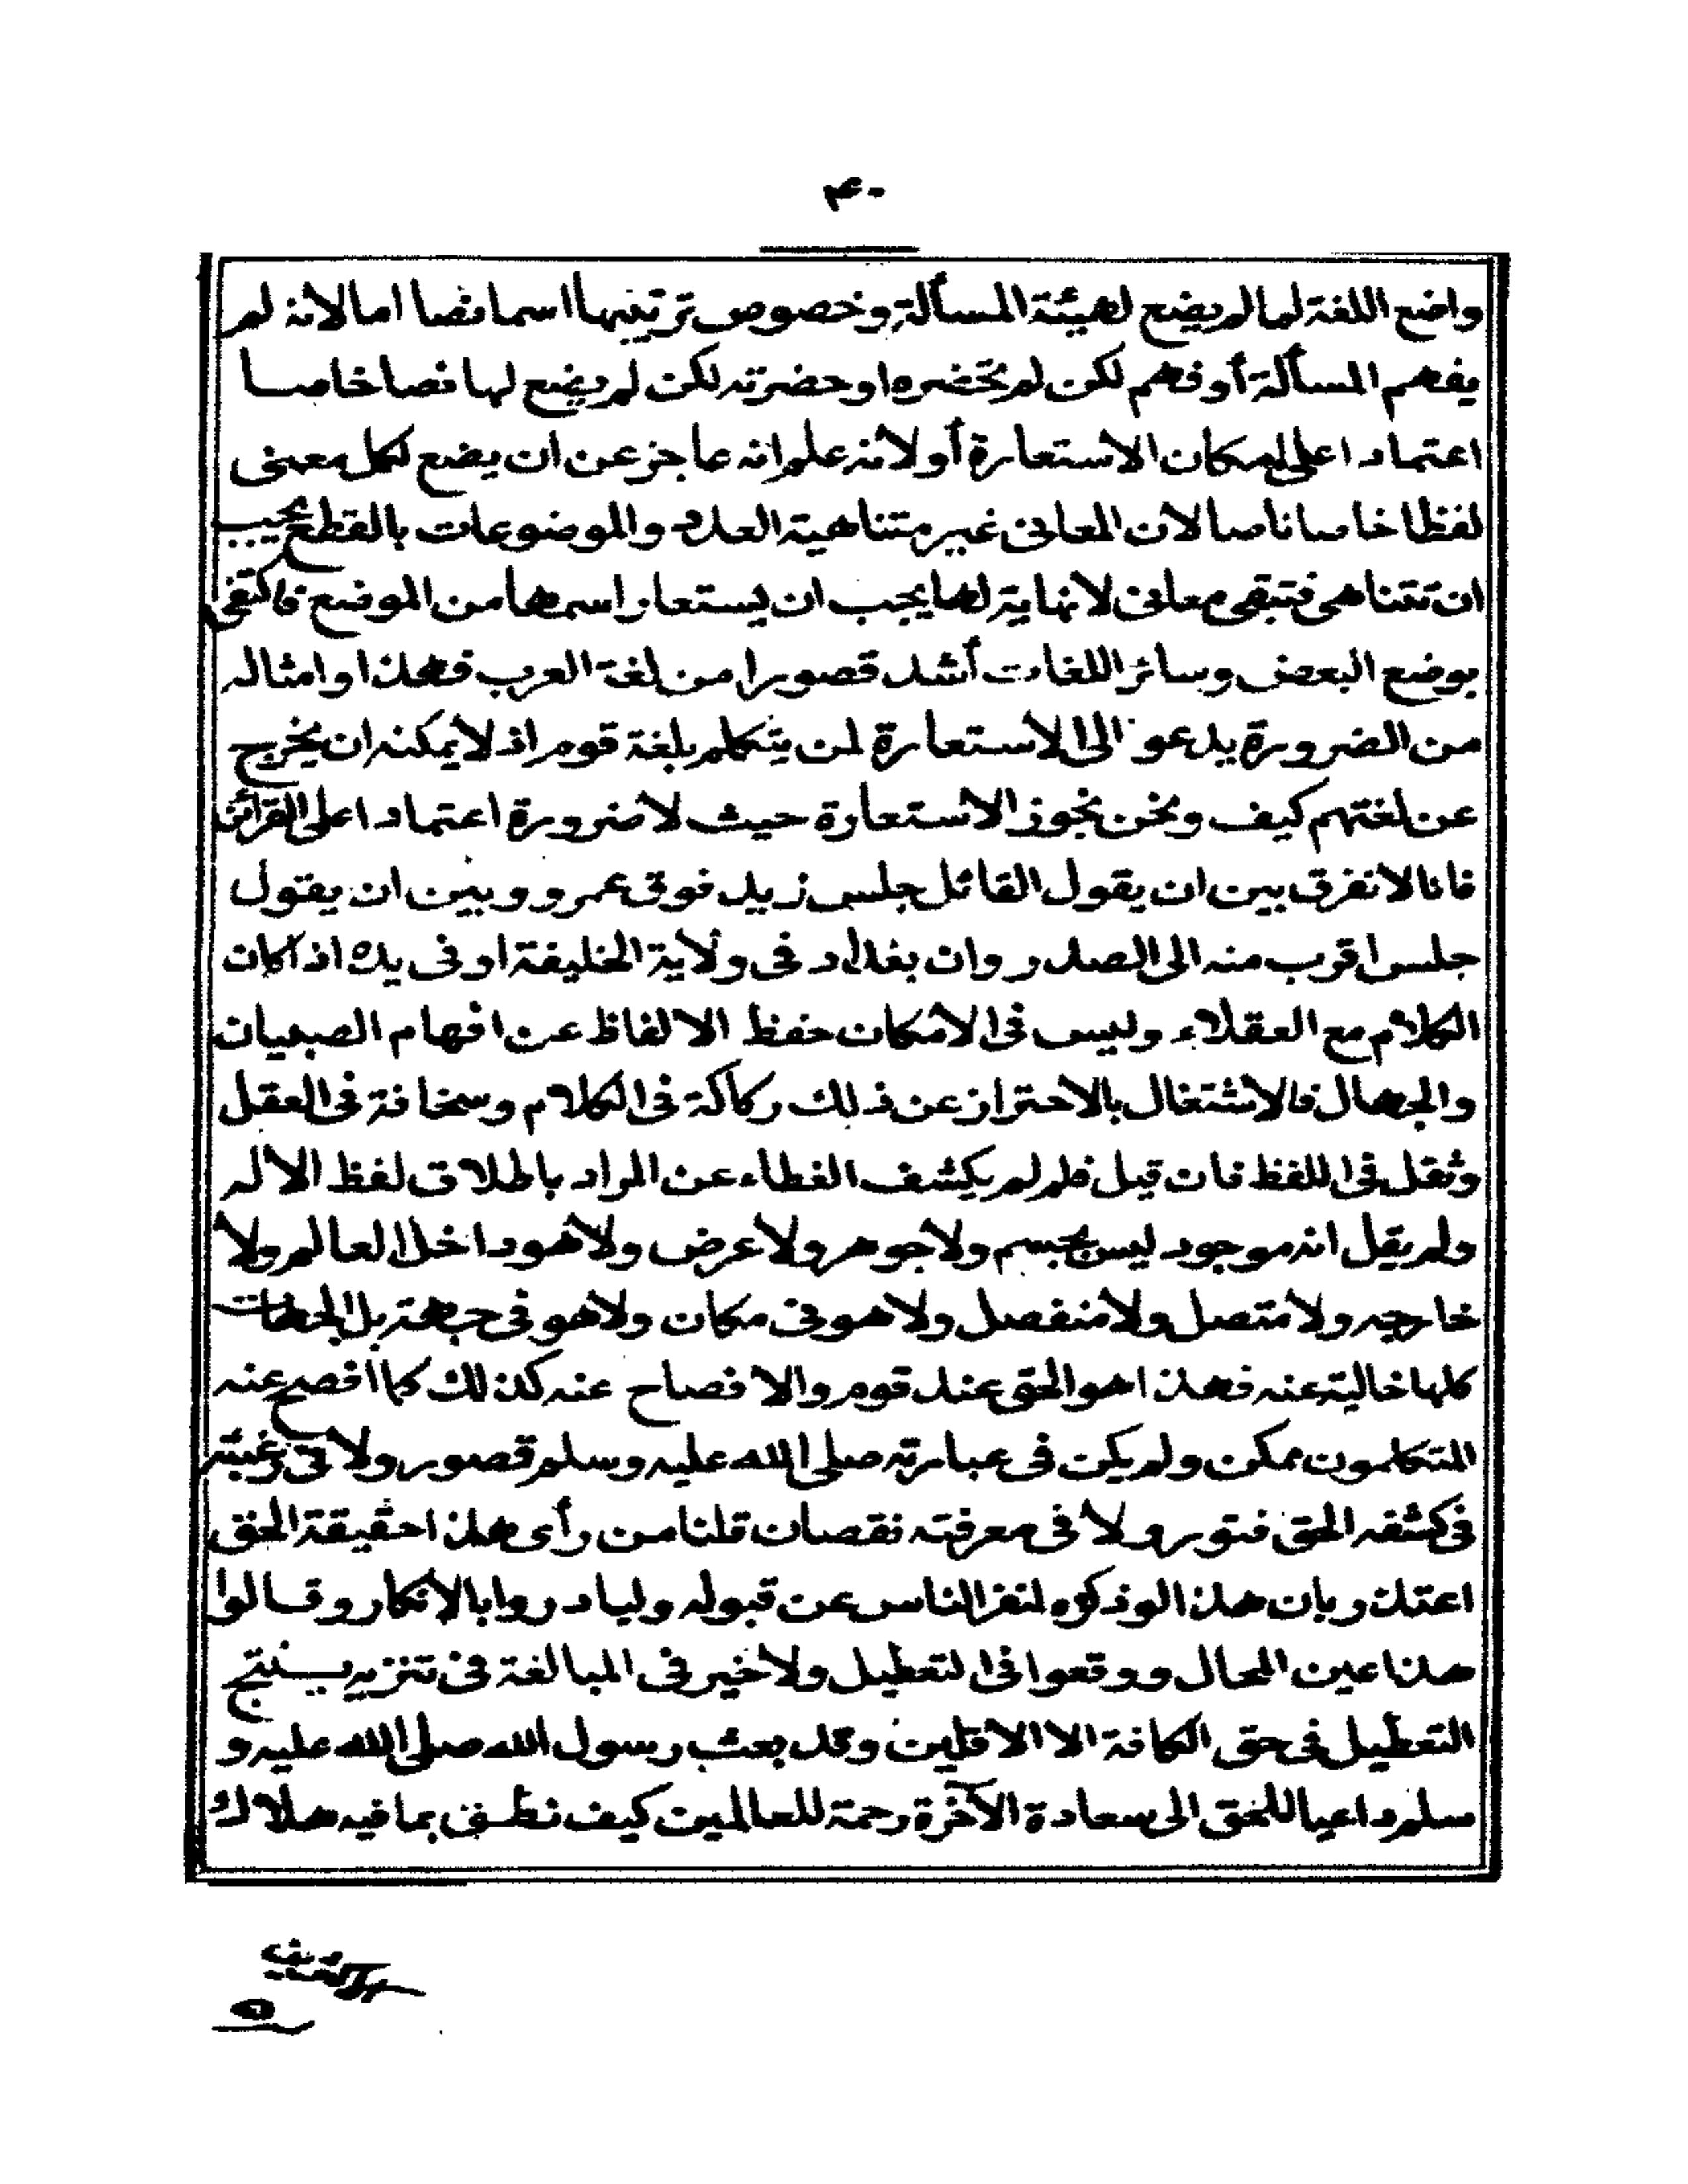 ٤٠
واضع اللغة لما لم يضع لهيئة المسألة وخصوص ترتيبها اسما نصا اما لانه لم
يفهم المسألة أو فهم لكن لم تحضره او حضرته لكن لم يضع لها نصا خاصا
اعتمادا على امكان الاستعارة أو لانه علم انه عاجز عن ان يضع لكل معنى
لفظا خاصا ناصا لان المعانى غير متناهية العدد والموضوعات بالقطع يجب
ان تتناهى فتبقى معانى لا نهاية لها يجب ان يستعار اسمها من الموضع فاكتفى
بوضع البعض وسائر اللغات أشد قصورا من لغة العرب فهذا وامثاله
من الضرورة يدعو الى الاستعارة لمن يتكلم بلغة قوم اذ لا يمكنه ان يخرج
عن لغتهم كيف ونحن نجوز الاستعارة حيث لا ضرورة اعتمادا على القرائن
فانا لا نفرق بين ان يقول القائل جلس زيد فوق عمرو وبين ان يقول
جلس اقرب منه الى الصدر وان بغداد فى ولاية الخليفة او فى يده اذا كان
الكلام مع العقلاء وليس فى الامكان حفظ الالفاظ عن افهام الصبيان
والجهال فالاشتغال بالاحتراز عن ذلك ركاكة فى الكلام وسخافة فى العقل
وثقل فى اللفظ فان قيل فلم لم يكشف الغطاء عن المراد باطلاق لفظ الاله
ولم يقل انه موجود ليس بجسم ولا جوهر ولا عرض ولا هو داخل العالم ولا
خارجه ولا متصل ولا منفصل ولا هو فى مكان ولا هو فى جهة بل الجهات
كلها خالية عنه فهذا هو الحق عند قوم والافصاح عنه كذلك كما افصح عنه
المتكلمون ممكن ولم يكن فى عبارته صلى الله عليه وسلم قصور ولا فى رغبته
فى كشفه الحق فتور ولا فى معرفته نقصان قلنا من رأى هذا حقيقة الحق
اعتذر بان هذا لو ذكره لنفر الناس عن قبوله ولبادروا بالانكار وقالوا
هذا عين المحال ووقعوا فى التعطيل ولا خير فى المبالغة فى تنزيه ينتج
التعطيل فى حق الكافة الا الاقلين وقد بعث رسول الله صلى الله عليه و
سلم داعيا للخق الى سعادة الآخرة رحمة للعالمين كيف نطق بما فيه هلاك